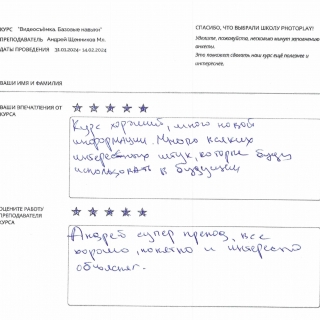 КУРС "Видеосъёмка. Базовые навыки"
ПРЕПОДАВАТЕЛЬ Андрей Щенников М1.
ДАТЫ ПРОВЕДЕНИЯ 31.01.2024- 14.02.2024
СПАСИБО, ЧТО ВЫБРАЛИ ШКОЛУ PHOTOPLAY!
Уделите, пожалуйста, несколько минут заполнению
анкеты.
Это поможет сделать наш курс ещё полезнее и
интереснее.
ВАШИ ИМЯ И ФАМИЛИЯ
ВАШИ ВПЕЧАТЛЕНИЯ ОТ
КУРСА
Курс хороший, много новой
информации. Много всяких
интересных штук, которые буду
использовать в будущем
ОЦЕНИТЕ РАБОТУ
ПРЕПОДАВАТЕЛЯ
КУРСА
Андрей супер препод, все
хорошо, понятно и интересно
объяснял.